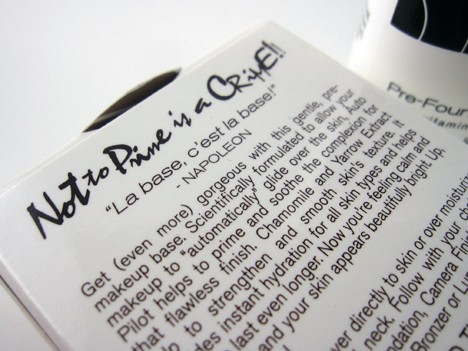 Not to Prime is a CRiME!!
"La base, c'est la base!"
- NAPOLEON
Get (even more) gorgeous with this gentle, pre-
makeup base. Scientifically formulated to allow your
makeup to "automatically" glide over the skin, Auto
Pilot helps to prime and soothe the complexion for
that flawless finish. Chamomile and Yarrow Extract
to strengthen and smooth skin's texture. It
instant hydration for all skin types and helps
last even longer. Now you're feeling calm and
and your skin appears beautifully bright. Up,
directly to skin or over moistur
neck. Follow with your
Camera Fin
Bronzer or
Pre-Four